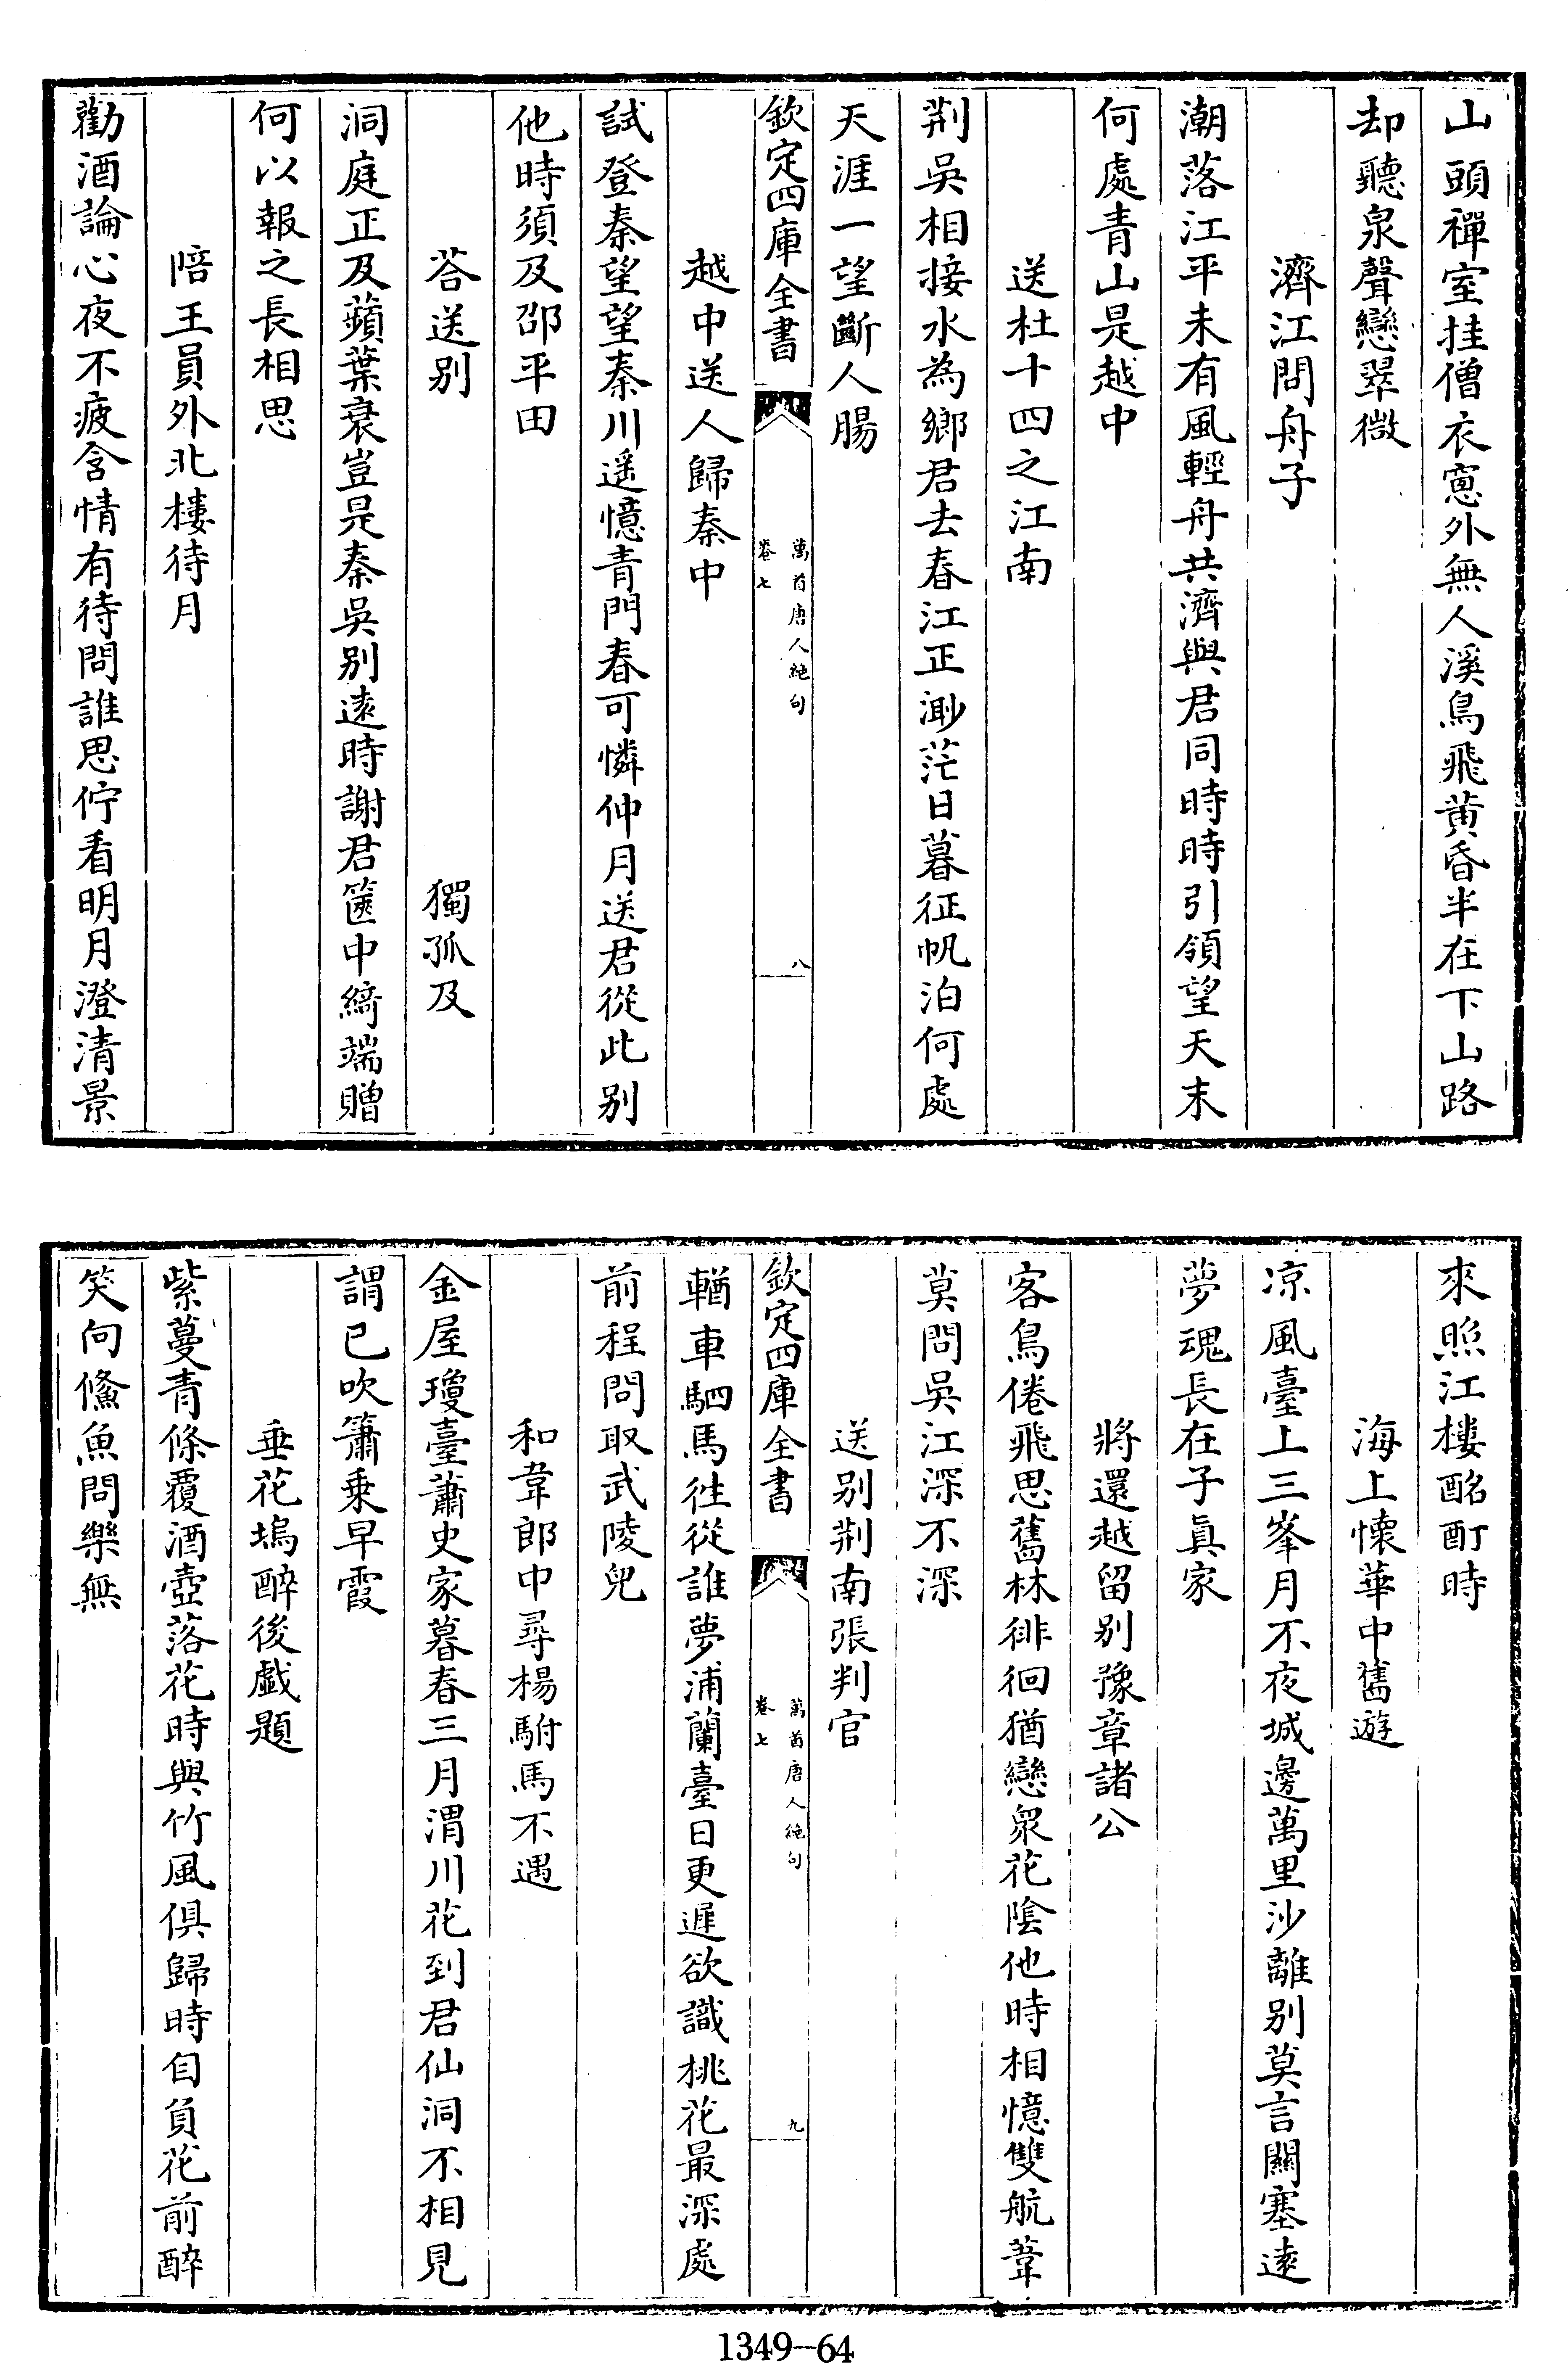 山頭禪室挂僧衣窻外無人溪鳥飛黄昏半在下山路
却聽泉聲戀翠微
濟江問舟子
潮落江平未有風輕舟共濟與君同時時引領望天末
何處青山是越中
送杜十四之江南
荆吳相接水為鄉君去春江正渺茫日暮征帆泊何處
天涯一望斷人腸
欽定四庫全書
萬首唐人絶句
卷七
八
越中送人歸秦中
試登秦望望秦川遥憶青門春可憐仲月送君從此别
他時須及邵平田
荅送别
獨孤及
洞庭正及蘋葉衰豈是秦吳别逺時謝君篋中綺端贈
何以報之長相思
陪王員外北樓待月
勸酒論心夜不疲含情有待問誰思佇看明月澄清景
來照江樓酩酊時
海上懷華中舊遊
凉風臺上三峯月不夜城邊萬里沙離别莫言關塞逺
夢魂長在子眞家
將還越留别豫章諸公
客鳥倦飛思舊林徘徊猶戀衆花陰他時相憶雙航葦
莫問吳江深不深
送别荆南張判官
欽定四庫全書
萬首唐人絶句
卷七
九
輶車駟馬徃從誰夢浦蘭臺日更遲欲識桃花最深處
前程問取武陵兒
和韋郎中尋楊駙馬不遇
金屋瓊臺蕭史家暮春三月渭川花到君仙洞不相見
謂已吹簫乗早霞
垂花塢醉後戯題
紫蔓青條覆酒壺落花時與竹風俱歸時自負花前醉
笑向鯈魚問樂無
1349-64